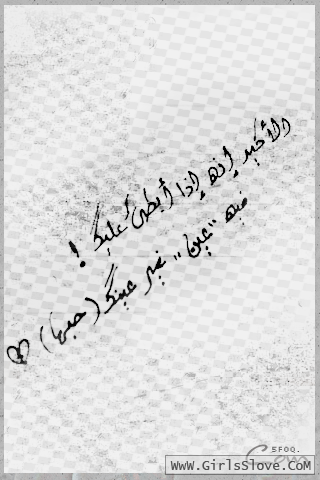 والأكيد إنه إذا أبطى عليك !
فيه "عين" غير عينك (حبها) ♡
5FOQ.
www.GirlsSlove.Com